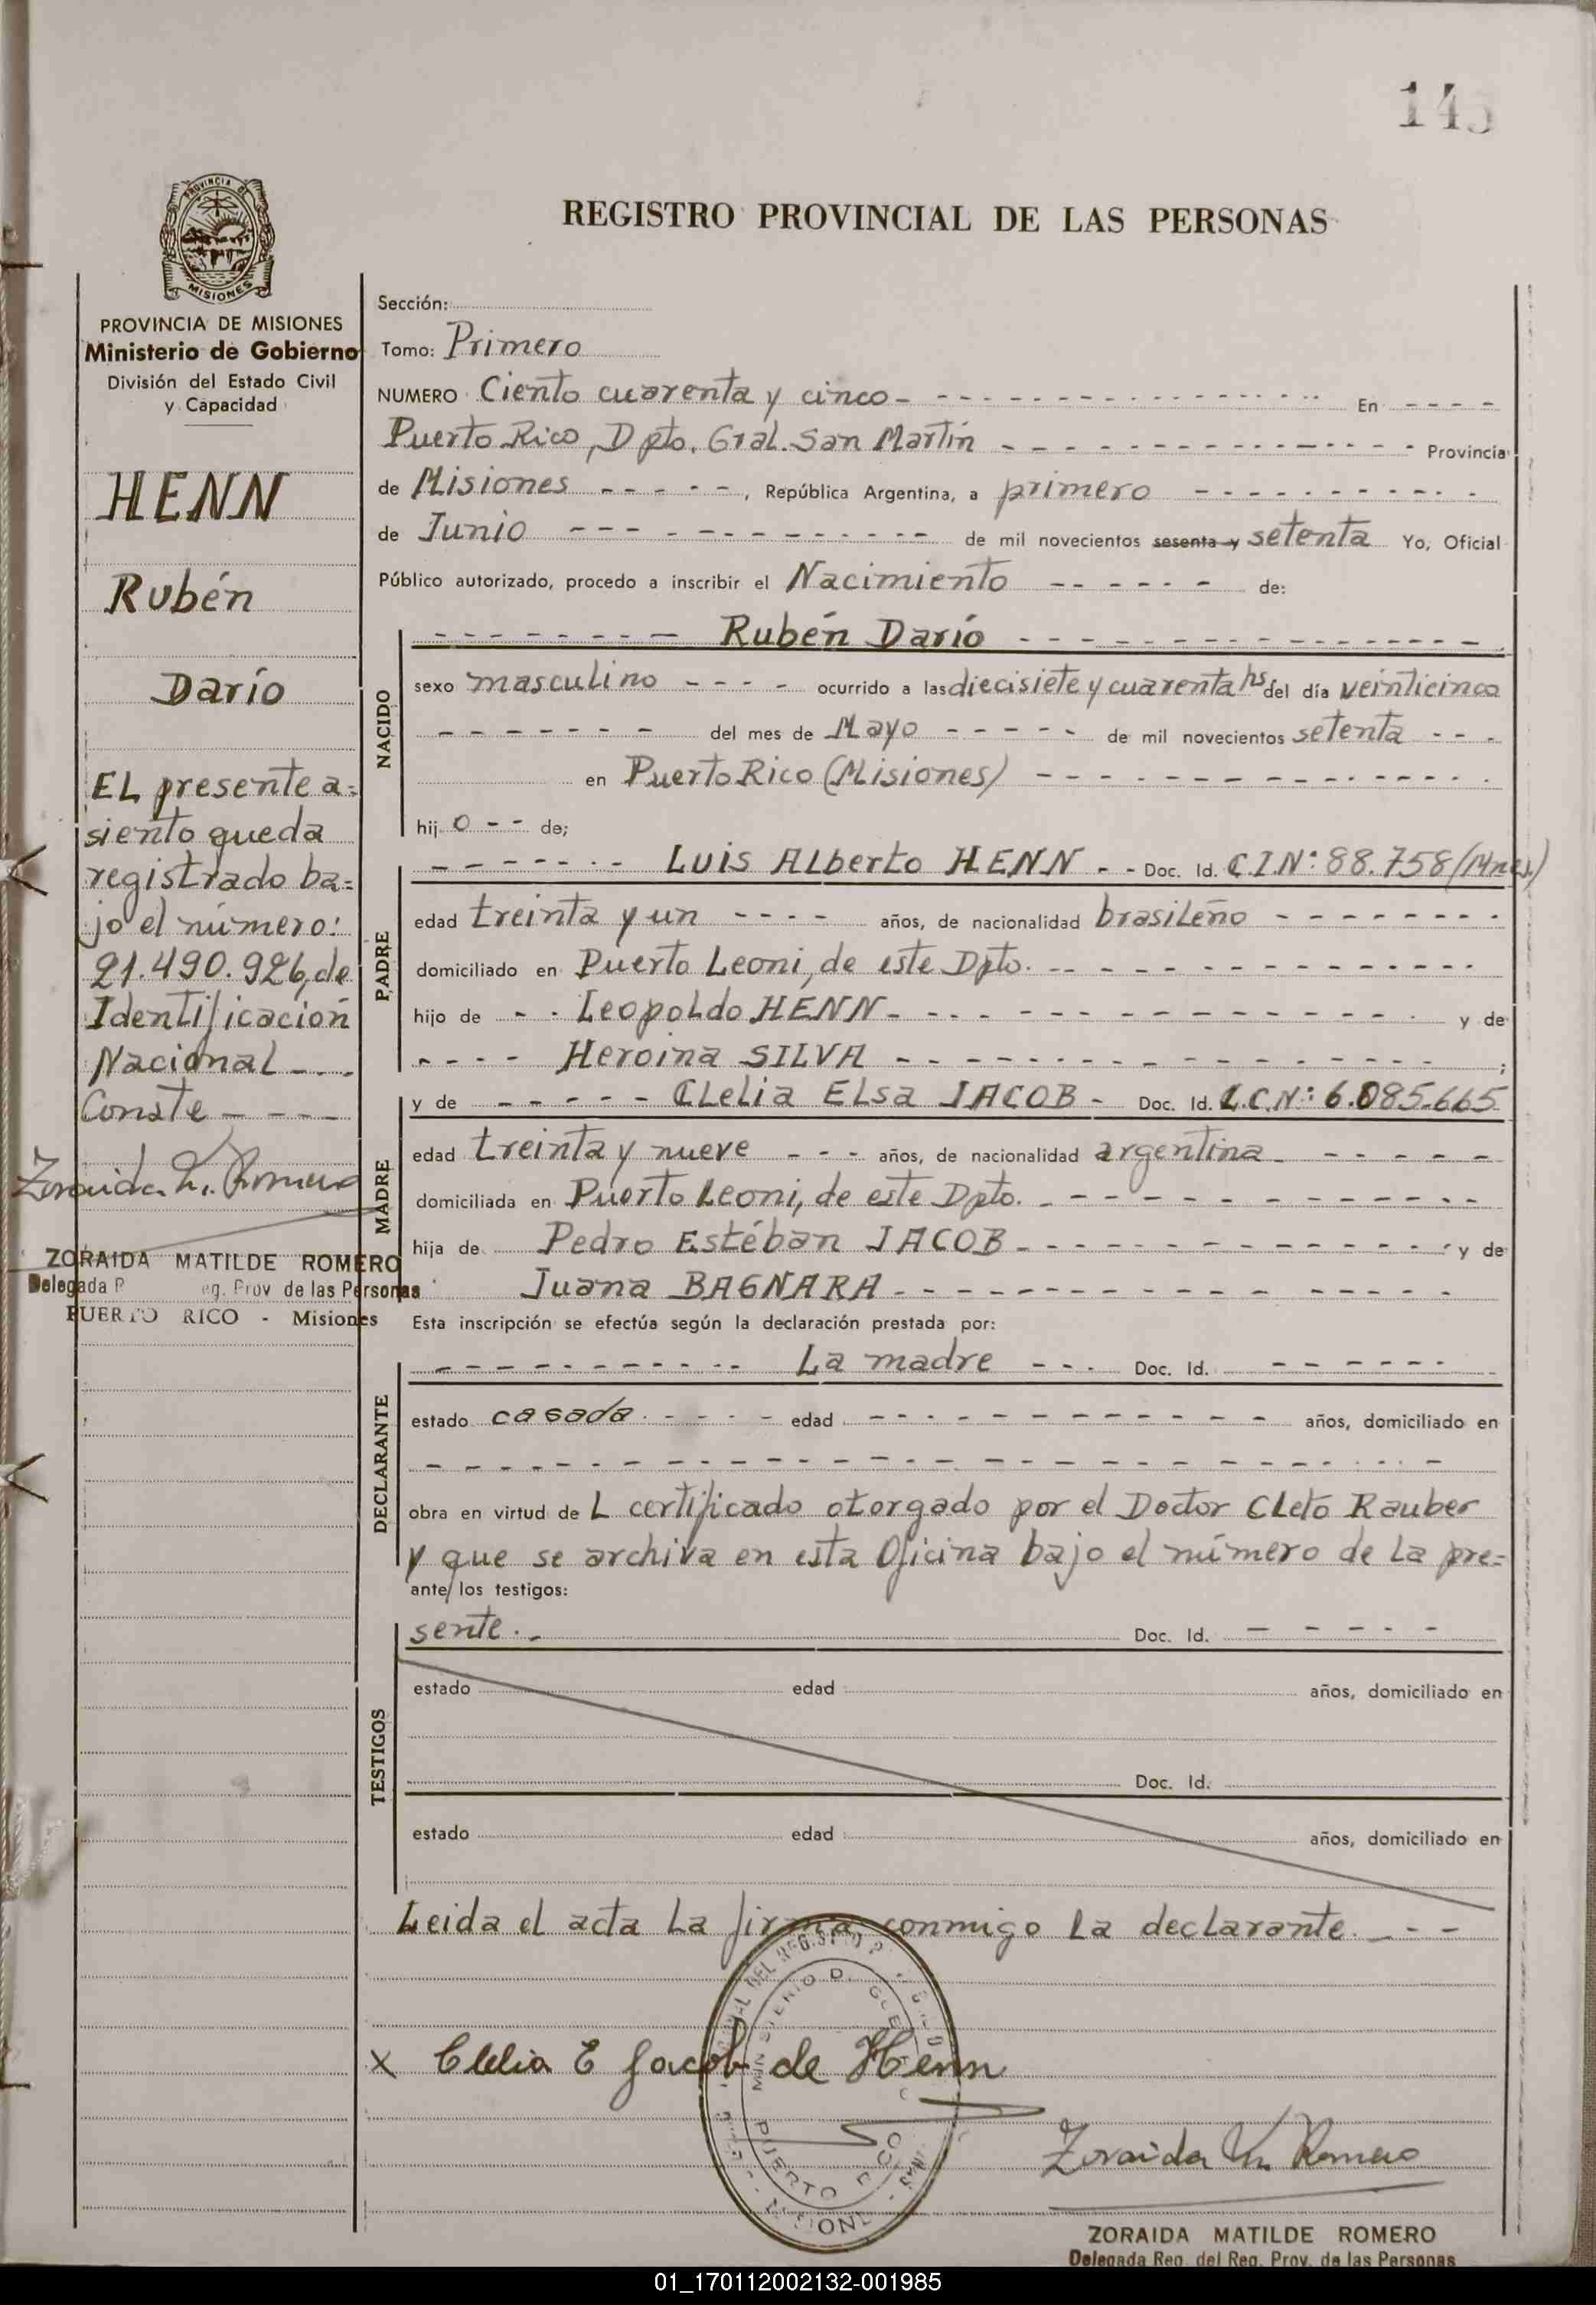 145
PROVINCIA DE MISIONES
REGISTRO PROVINCIAL DE LAS PERSONAS
PROVINCIA DE MISIONES
Ministerio de Gobierno
División del Estado Civil
y Capacidad
HENN
Rubén
Darío
EL presente a=
siento queda
registrado ba=
jo el número:
21.490.926, de
Identificación
Nacional - - -
Conste - - - -
Zoraida M. Romero
ZORAIDA MATILDE ROMERO
Delegada Reg. Prov de las Personas
PUERTO RICO - Misiones
Sección:
Tomo: Primero
NUMERO Ciento cuarenta y cinco - - - - En - - - -
Puerto Rico, Dpto. Gral. San Martín - - - - Provincia
de Misiones - - - - -, República Argentina, a primero - - - -
de Junio - - - - de mil novecientos sesenta y setenta Yo, Oficial
Público autorizado, procedo a inscribir el Nacimiento - - - - de:
NACIDO
- - - - Rubén Darío - - - -
sexo masculino - - - - ocurrido a las diecisiete y cuarenta hs del día veinticinco
- - - - del mes de Mayo - - - - de mil novecientos setenta - - -
en Puerto Rico (Misiones) - - - -
hij o - - de;
PADRE
- - - - Luis Alberto HENN - - Doc. Id. C.I.Nº: 88.758 (Mnes)
edad treinta y un - - - - años, de nacionalidad brasileño - - - -
domiciliado en Puerto Leoni, de este Dpto. - - - -
hijo de - - Leopoldo HENN - - - - y de
- - - - Heroina SILVA - - - - ;
MADRE
y de - - - - - Clelia Elsa JACOB - Doc. Id. L.C.Nº: 6.085.665
edad treinta y nueve - - - años, de nacionalidad argentina - - - -
domiciliada en Puerto Leoni, de este Dpto. - - - -
hija de Pedro Estéban JACOB - - - - y de
Juana BAGNARA - - - -
Esta inscripción se efectúa según la declaración prestada por:
DECLARANTE
- - - - La madre - - - Doc. Id. - - - -
estado casada - - - - edad - - - - años, domiciliado en
- - - -
obra en virtud de L certificado otorgado por el Doctor Cleto Rauber
y que se archiva en esta Oficina bajo el número de la pre=
ante/los testigos:
TESTIGOS
sente.- Doc. Id. - - - -
estado edad años, domiciliado en
Doc. Id.
estado edad años, domiciliado en
Leida el acta La firma conmigo la declarante. - - -
x Clelia E Jacob de Henn
PUERTO
Zoraida M. Romero
ZORAIDA MATILDE ROMERO
Delegada Reg. del Reg. Prov. de las Personas
01_170112002132-001985